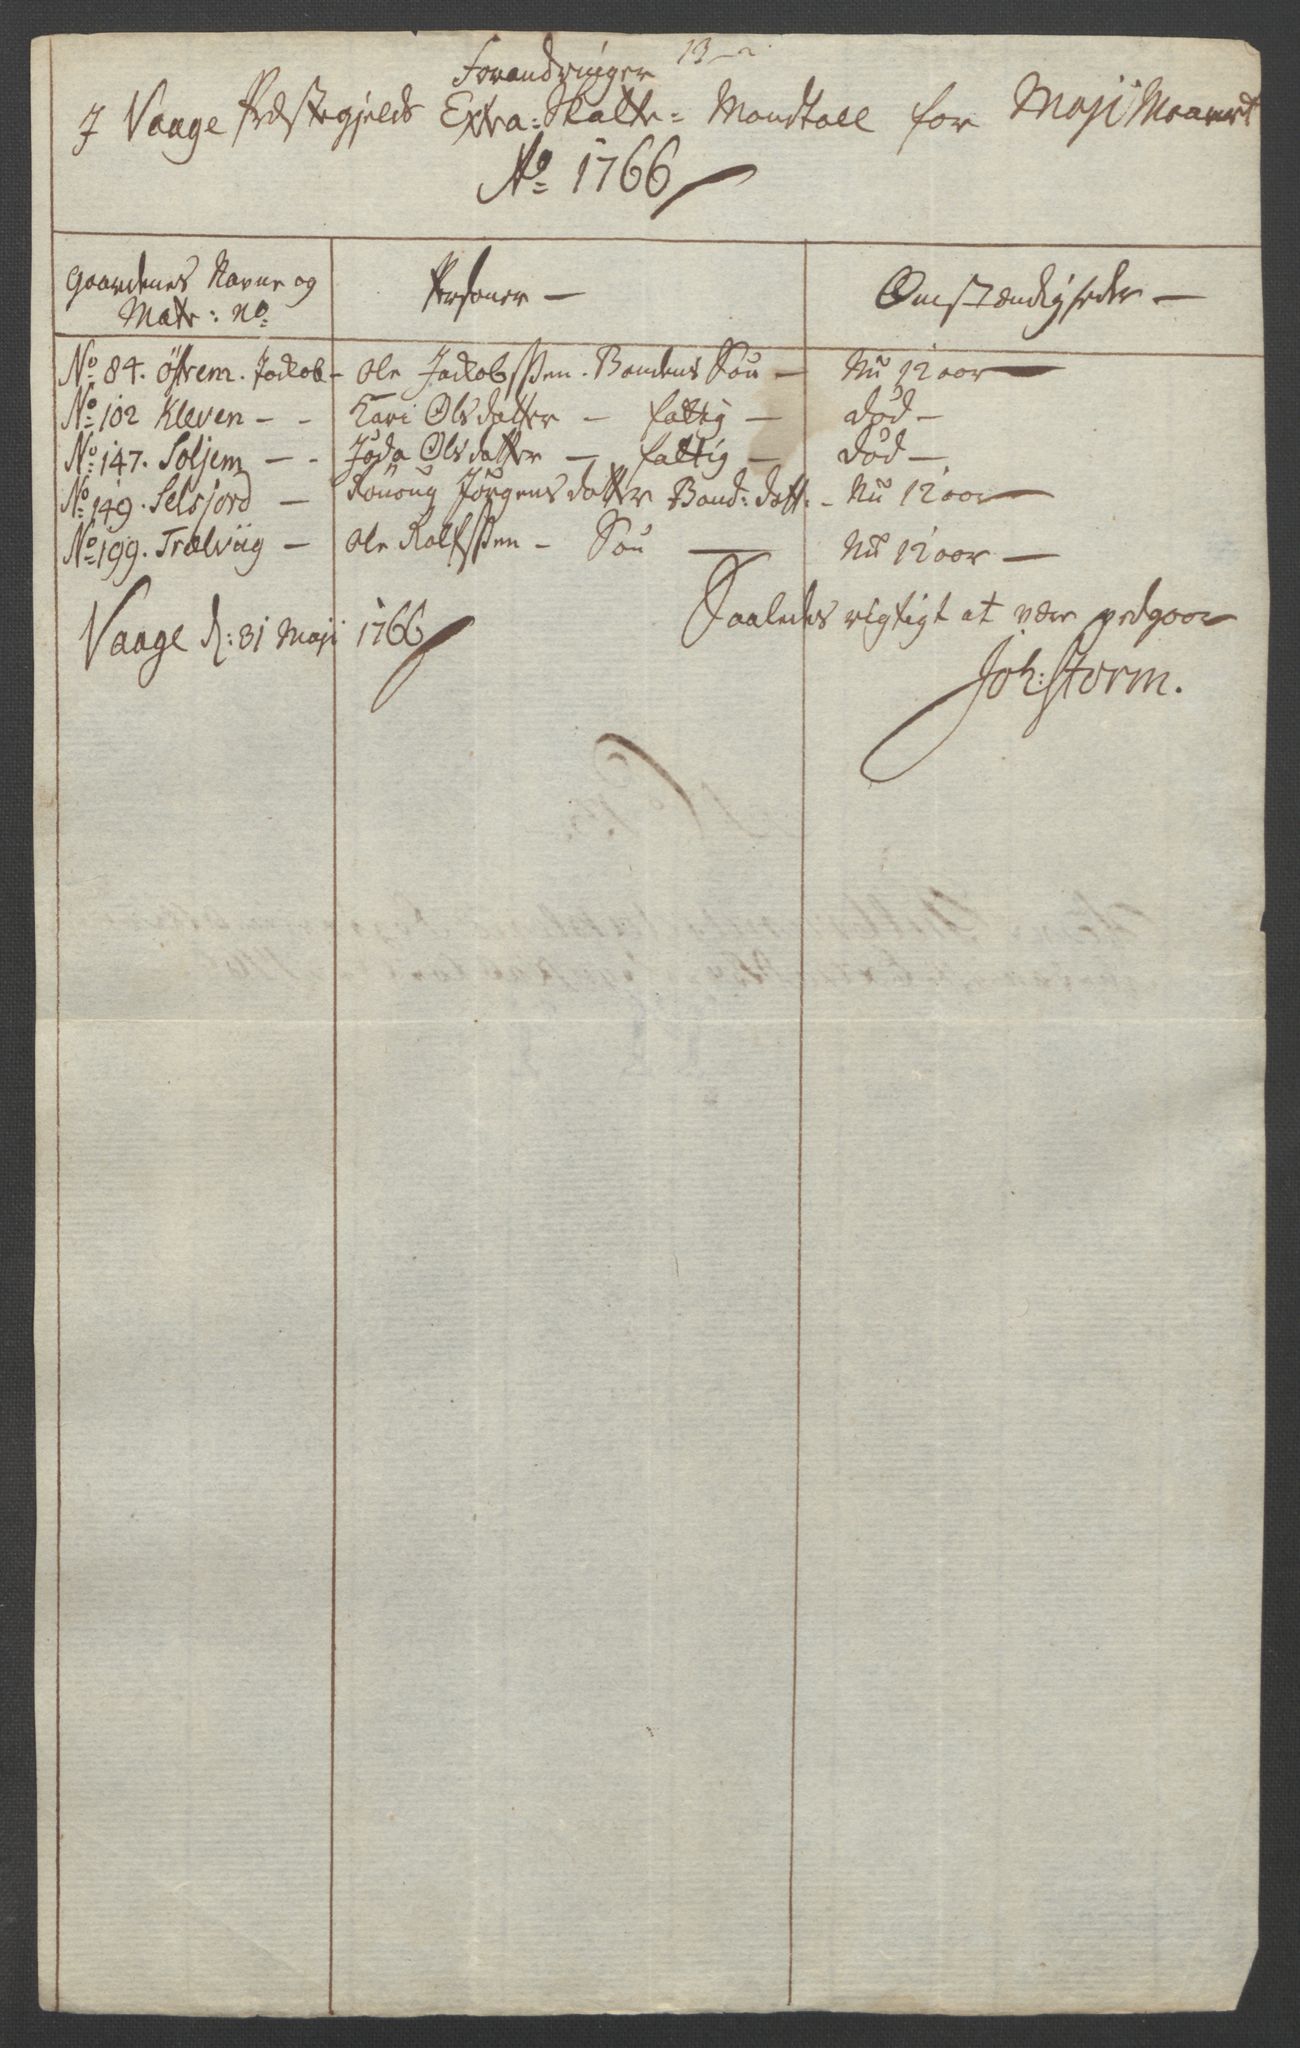 13
Forandringer
J Vaage Præstegjelds Extra-Skatte-Mandtall for Maji Maanet
No 1766
Gaardenes Navne og Matr: No
Personer —
Omstændigheder —
No 84. Øfrem. Jackob - Ole Jackobssen. Bondens Søn — Nu 12 aar —
No 102 Kleven - - Kari Olsdatter — fattig — død —
No 147. Soljem — - Olsdatter — fattig — død —
No 149. Selsjord — Rønoug Jørgensdatter Bond: datt. - Nu 12 aar —
No 199. Trælviig — Ole Rolfssen - Søn — Nu 12 aar —
Vaage d: 31 Maji 1766
Saaledes rigtigt at være vedgaar
Joh: Storm.